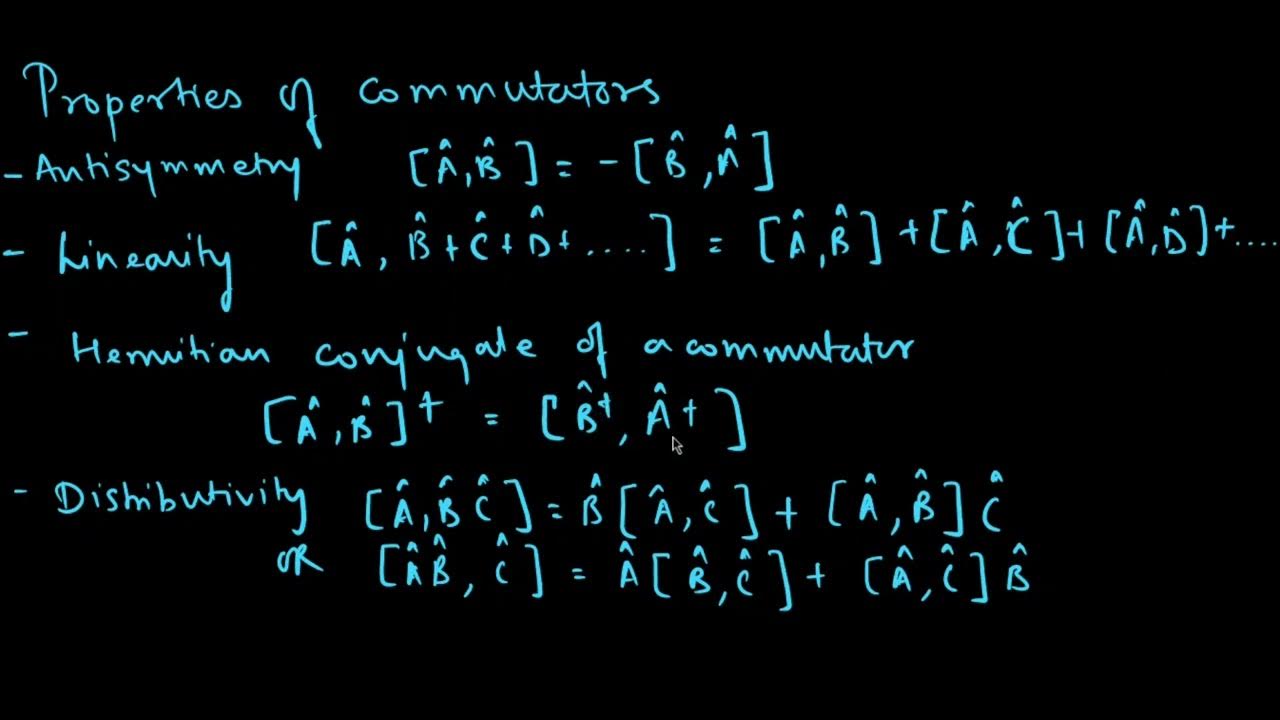 Properties of commutators
- Antisymmetry [Â, B̂] = - [B̂, Â]
- Linearity [Â, B̂ + Ĉ + D̂ + ....] = [Â, B̂] + [Â, Ĉ] + [Â, D̂] + ....
- Hermitian conjugate of a commutator
[Â, B̂]† = [B̂†, Â†]
- Distributivity [Â, B̂ Ĉ] = B̂ [Â, Ĉ] + [Â, B̂] Ĉ
OR [Â B̂, Ĉ] = Â [B̂, Ĉ] + [Â, Ĉ] B̂